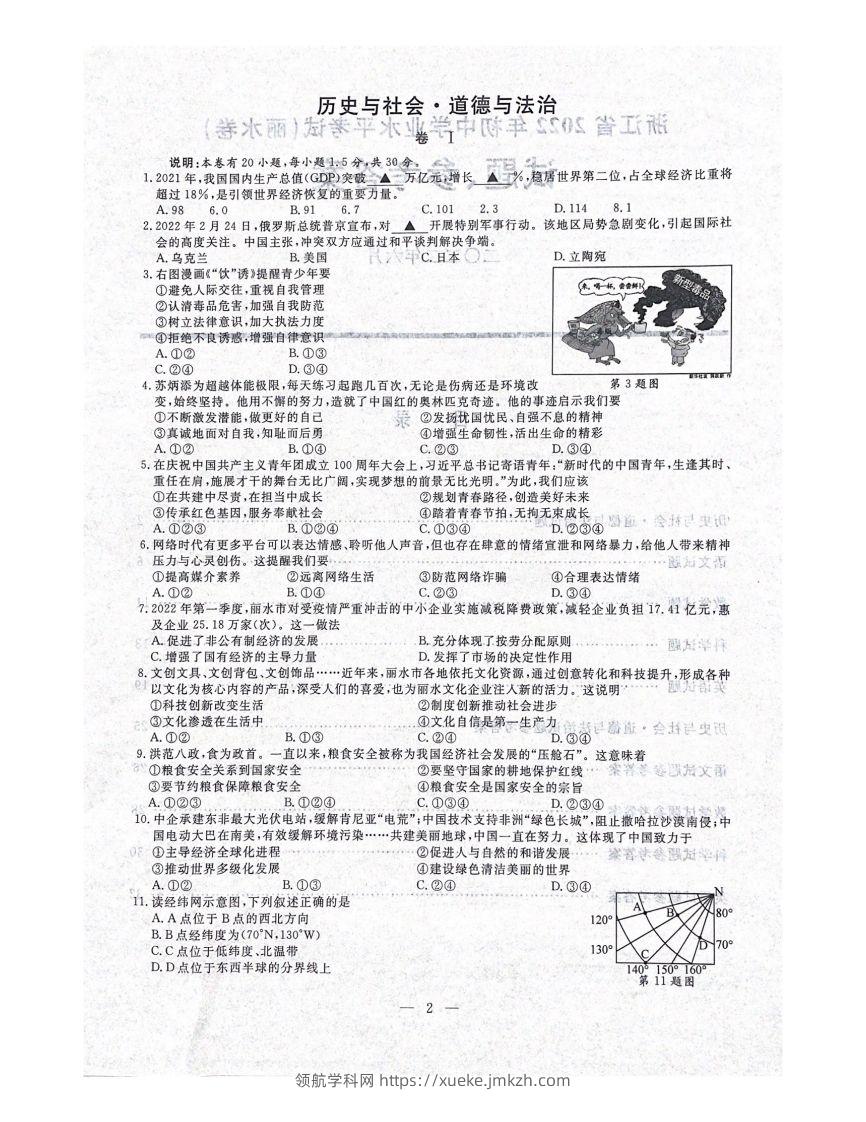 历史与社会·道德与法治
卷 Ⅰ
说明:本卷有20小题,每小题1.5分,共30分。
1.2021年,我国国内生产总值(GDP)突破 ▲ 万亿元,增长 ▲ %,稳居世界第二位,占全球经济比重将
超过18%,是引领世界经济恢复的重要力量。
A.98 6.0 B.91 6.7 C.101 2.3 D.114 8.1
2.2022年2月24日,俄罗斯总统普京宣布,对 ▲ 开展特别军事行动。该地区局势急剧变化,引起国际社
会的高度关注。中国主张,冲突双方应通过和平谈判解决争端。
A.乌克兰 B.美国 C.日本 D.立陶宛
3.右图漫画《“饮”诱》提醒青少年要
①避免人际交往,重视自我管理
②认清毒品危害,加强自我防范
③树立法律意识,加大执法力度
④拒绝不良诱惑,增强自律意识
A.①② B.①③
C.②④ D.③④
来,喝一杯,尝尝鲜!
新型毒品
第3题图
4.苏炳添为超越体能极限,每天练习起跑几百次,无论是伤病还是环境改
变,始终坚持。他用不懈的努力,造就了中国红的奥林匹克奇迹。他的事迹启示我们要
①不断激发潜能,做更好的自己 ②发扬忧国忧民、自强不息的精神
③真诚地面对自我,知耻而后勇 ④增强生命韧性,活出生命的精彩
A.①② B.①④ C.②③ D.③④
5.在庆祝中国共产主义青年团成立100周年大会上,习近平总书记寄语青年:“新时代的中国青年,生逢其时、
重任在肩,施展才干的舞台无比广阔,实现梦想的前景无比光明。”为此,我们应该
①在共建中尽责,在担当中成长 ②规划青春路径,创造美好未来
③传承红色基因,服务奉献社会 ④踏着青春节拍,无拘无束成长
A.①②③ B.①②④ C.①③④ D.②③④
6.网络时代有更多平台可以表达情感、聆听他人声音,但也存在肆意的情绪宣泄和网络暴力,给他人带来精神
压力与心灵创伤。这提醒我们要
①提高媒介素养 ②远离网络生活 ③防范网络诈骗 ④合理表达情绪
A.①② B.①④ C.②③ D.③④
7.2022年第一季度,丽水市对受疫情严重冲击的中小企业实施减税降费政策,减轻企业负担17.41亿元,惠
及企业25.18万家(次)。这一做法
A.促进了非公有制经济的发展 B.充分体现了按劳分配原则
C.增强了国有经济的主导力量 D.发挥了市场的决定性作用
8.文创文具、文创背包、文创饰品……近年来,丽水市各地依托文化资源,通过创意转化和科技提升,形成各种
以文化为核心内容的产品,深受人们的喜爱,也为丽水文化企业注入新的活力。这说明
①科技创新改变生活 ②制度创新推动社会进步
③文化渗透在生活中 ④文化自信是第一生产力
A.①② B.①③ C.②④ D.③④
9.洪范八政,食为政首。一直以来,粮食安全被称为我国经济社会发展的“压舱石”。这意味着
①粮食安全关系到国家安全 ②要坚守国家的耕地保护红线
③要节约粮食保障粮食安全 ④粮食安全是国家安全的宗旨
A.①②③ B.①②④ C.①③④ D.②③④
10.中企承建东非最大光伏电站,缓解肯尼亚“电荒”;中国技术支持非洲“绿色长城”,阻止撒哈拉沙漠南侵;中
国电动大巴在南美,有效缓解环境污染……共建美丽地球,中国一直在努力。这体现了中国致力于
①主导经济全球化进程 ②促进人与自然的和谐发展
③推动世界多级化发展 ④建设绿色清洁美丽的世界
A.①② B.①③ C.②④ D.③④
11.读经纬网示意图,下列叙述正确的是
A.A点位于B点的西北方向
B.B点经纬度为(70°N,130°W)
C.C点位于低纬度、北温带
D.D点位于东西半球的分界线上
N
A
B
C
D
80°
70°
120°
130°
140° 150° 160°
第11题图
— 2 —
领航学科网 https://xueke.jmkzh.com